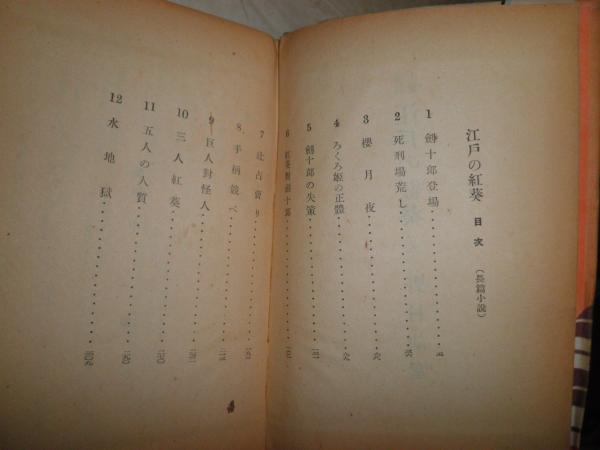 江戸の紅葵 目次 (長篇小説)
1 劍十郎登場
2 死刑場荒し
3 櫻月夜
4 ろくろ姫の正體
5 劍十郎の失策
6 紅葵對劍十郎
7 辻占賣り
8 手柄競べ
9 巨人對怪人
10 三人紅葵
11 五人の人質
12 水地獄